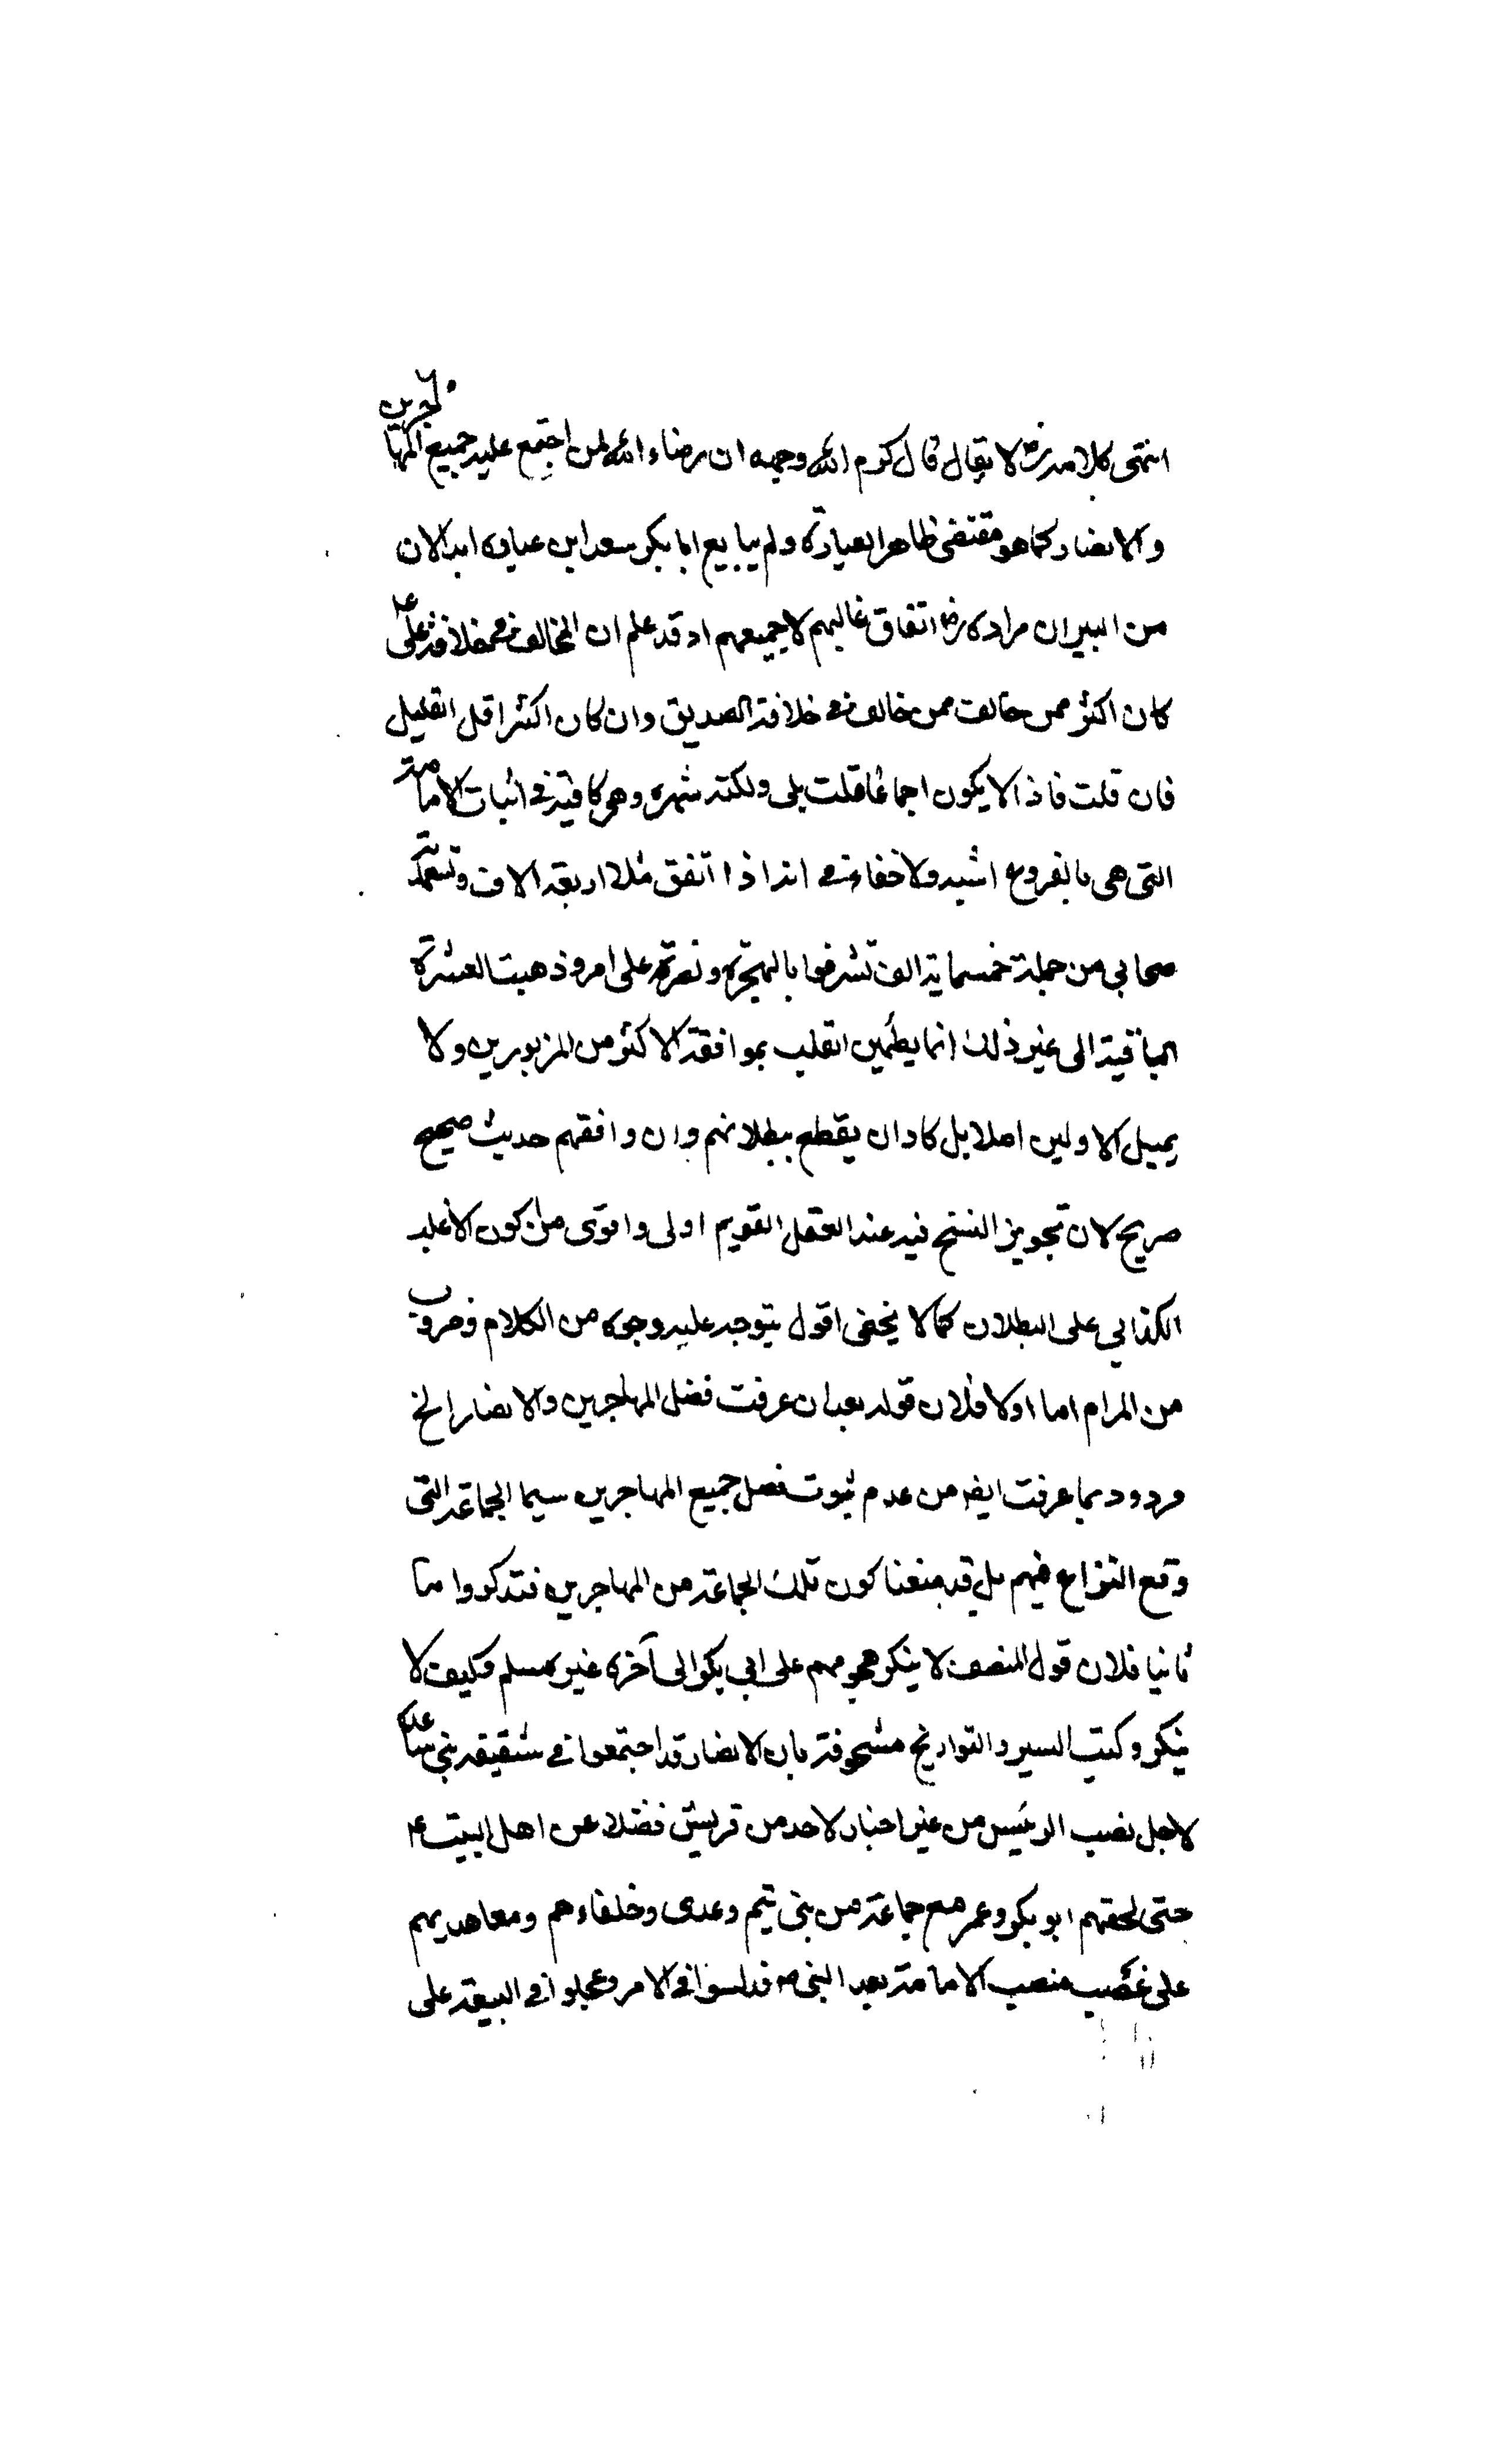 انتهى كلامه رض لا يقال قال كرم الله وجهه ان رضاء الله لمن اجتمع عليه جميع المهاجرين
والانصار كما هو مقتضى ظاهر العبارة ولم يبايع ابا بكر سعد ابن عبادة ابدا لان
من البين ان مراده رض اتفاق غالبهم لا جميعهم اذ قد علم ان المخالف في خلافة على ع
كان اكثر ممن خالف ممن خالف في خلافة الصديق وان كان اكثر اقل القليل
فان قلت فاذا لا يكون اجماعا قلت بلى ولكنه شهرة وهى كافية في اثبات الامامة
التى هى بالفروع اشبه ولا خفاء في انه اذا اتفق مثلا اربعة الاف وتسعمائة
صحابي من جملة خمسماية الف تشرفوا بالهجرة ونصرة على امر وذهبت العشرة
الباقية الى غير ذلك انما يطمئن القلب بموافقة الاكثر من المزبورين ولا
يميل الاولين اصلا بل كاد ان يقطع ببطلانهم وان وافقهم حديث صحيح
صريح لان تجويز النسخ فيه عند العقل القويم اولى واقوى من كون الاغلب
الكذايي على البطلان كما لا يخفى اقول يتوجه عليه وجوه من الكلام وضروب
من المرام اما اولا فلان قوله بعد ان عرفت فضل المهاجرين والانصار الخ
مردود بما عرفت ايضا من عدم ثبوت فضل جميع المهاجرين سيما الجماعة التى
وقع النزاع فيهم بل قد منعنا كون تلك الجماعة من المهاجرين فتذكروا ما
ثانيا فلان قول المنصف لا ينكر هجومهم على ابي بكر الى آخره غير مسلم وكيف لا
ينكر وكتب السير والتواريخ مشحونة بان الانصار قد اجتمعوا في سقيفة بني ساعدة
لاجل نصب الرئيس من غير اخبار لاحد من قريش فضلا عن اهل البيت ع
حتى لحقهم ابو بكر وعمر مع جماعة من بني تيم وعدى وخلفاءهم ومعاهديهم
على غصب منصب الامامة بعد النبي ص فدلسوا في الامر وعجلوا في البيعة على